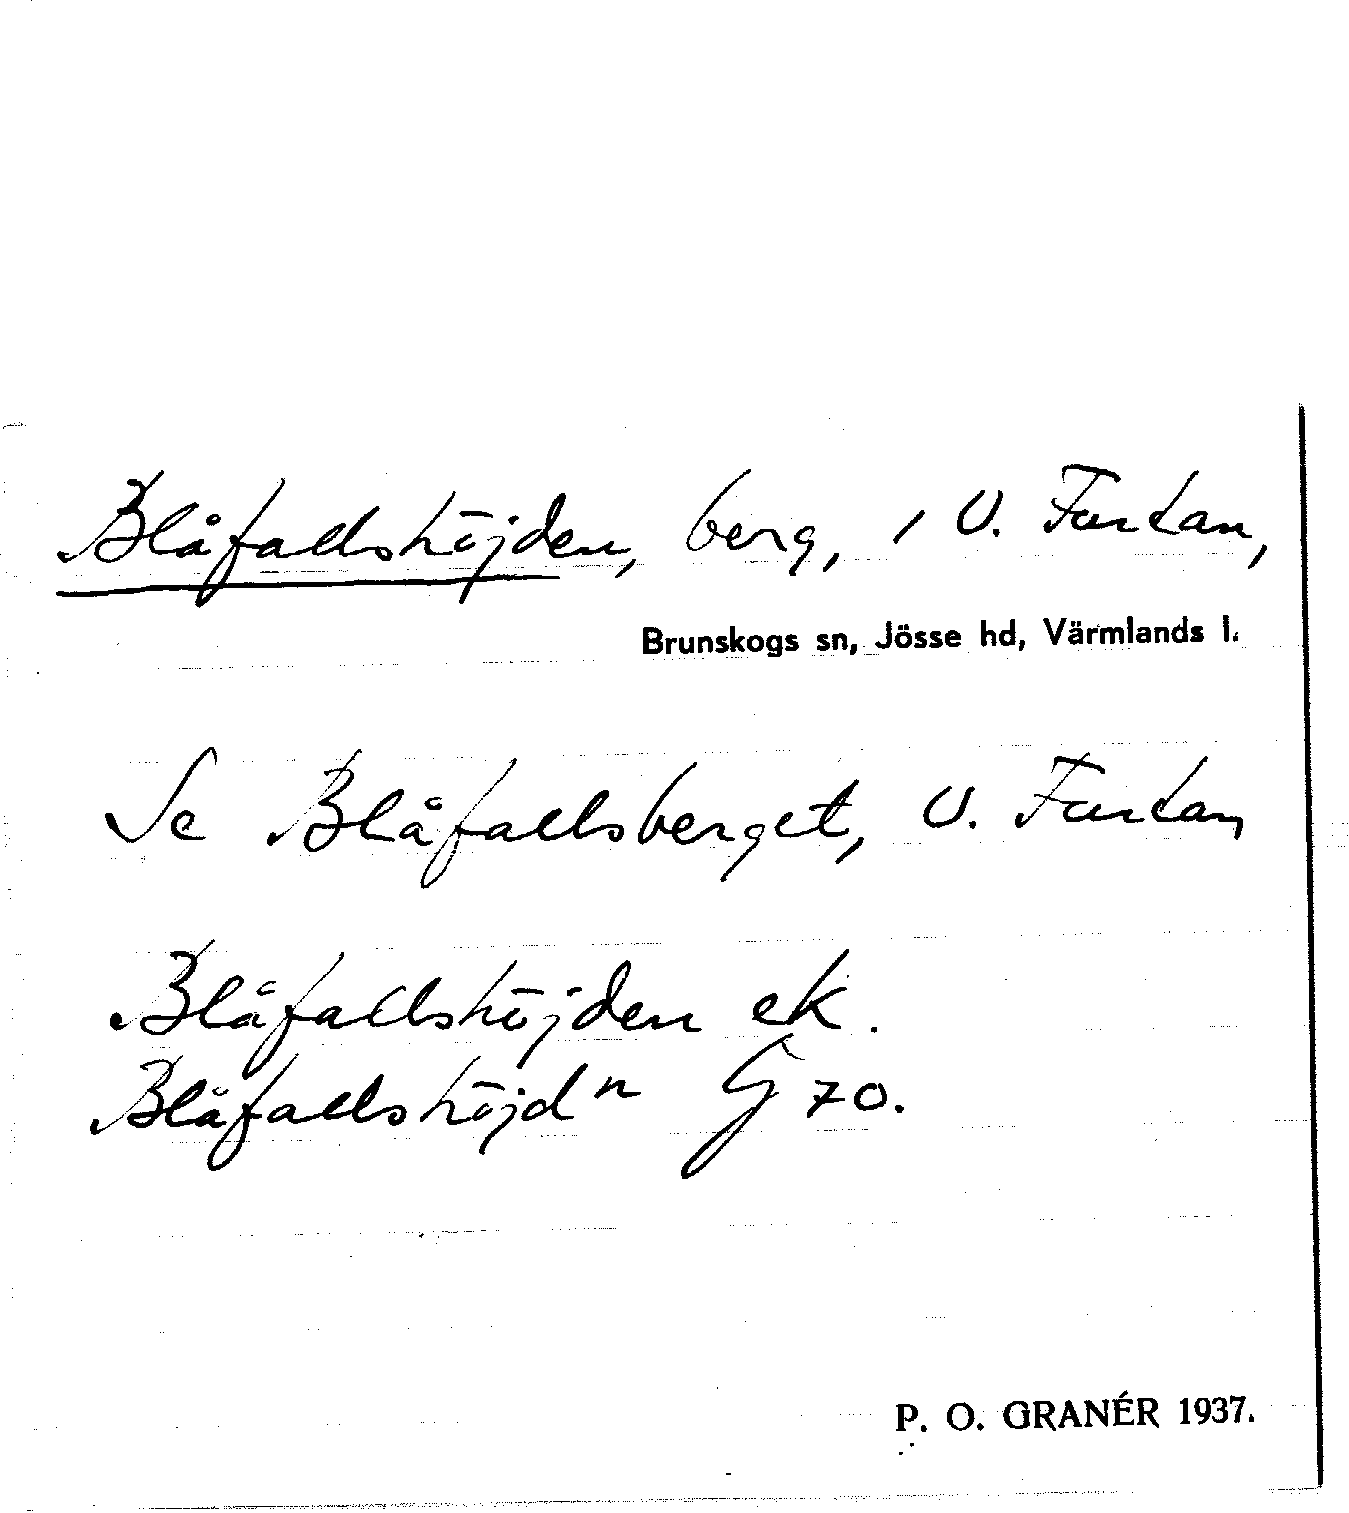 Blåfallshöjden, berg, i V. Furtan,
Brunskogs sn, Jösse hd, Värmlands l.
Se Blåfallsberget, V. Furtan
Blåfallshöjden ek.
Blåfallshöjdn G 70.
P. O. GRANÉR 1937.